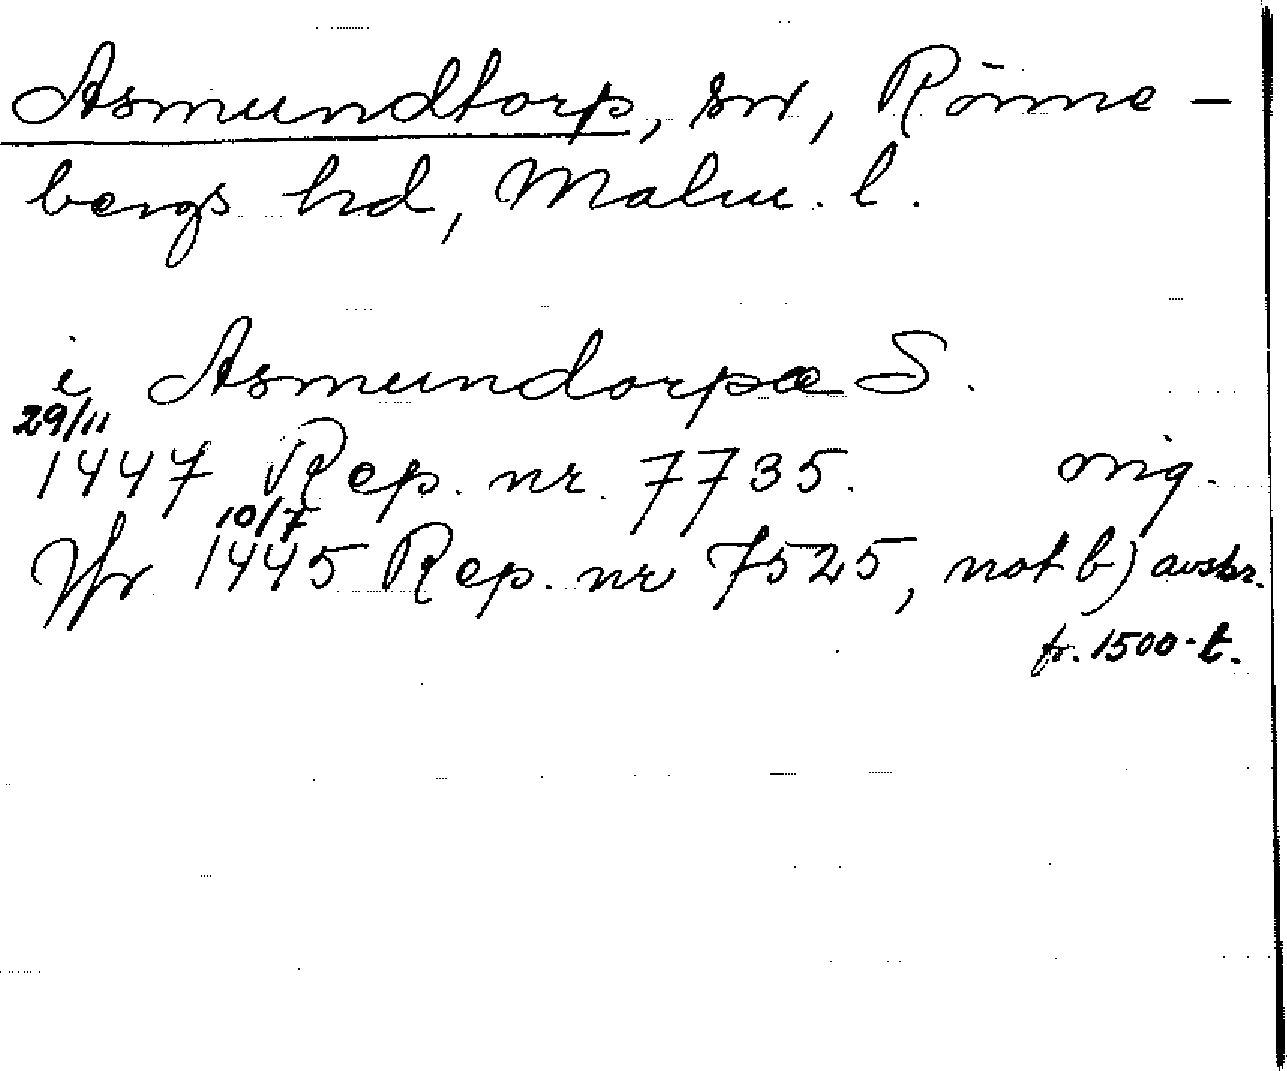 Asmundtorp, sn, Rönne-
bergs hd, Malm. l.
i Asmundorpæ S.
29/11
1447 Rep. nr. 7735. orig.
10/7
Jfr 1445 Rep. nr 7525, not b) avskr.
fr. 1500-t.